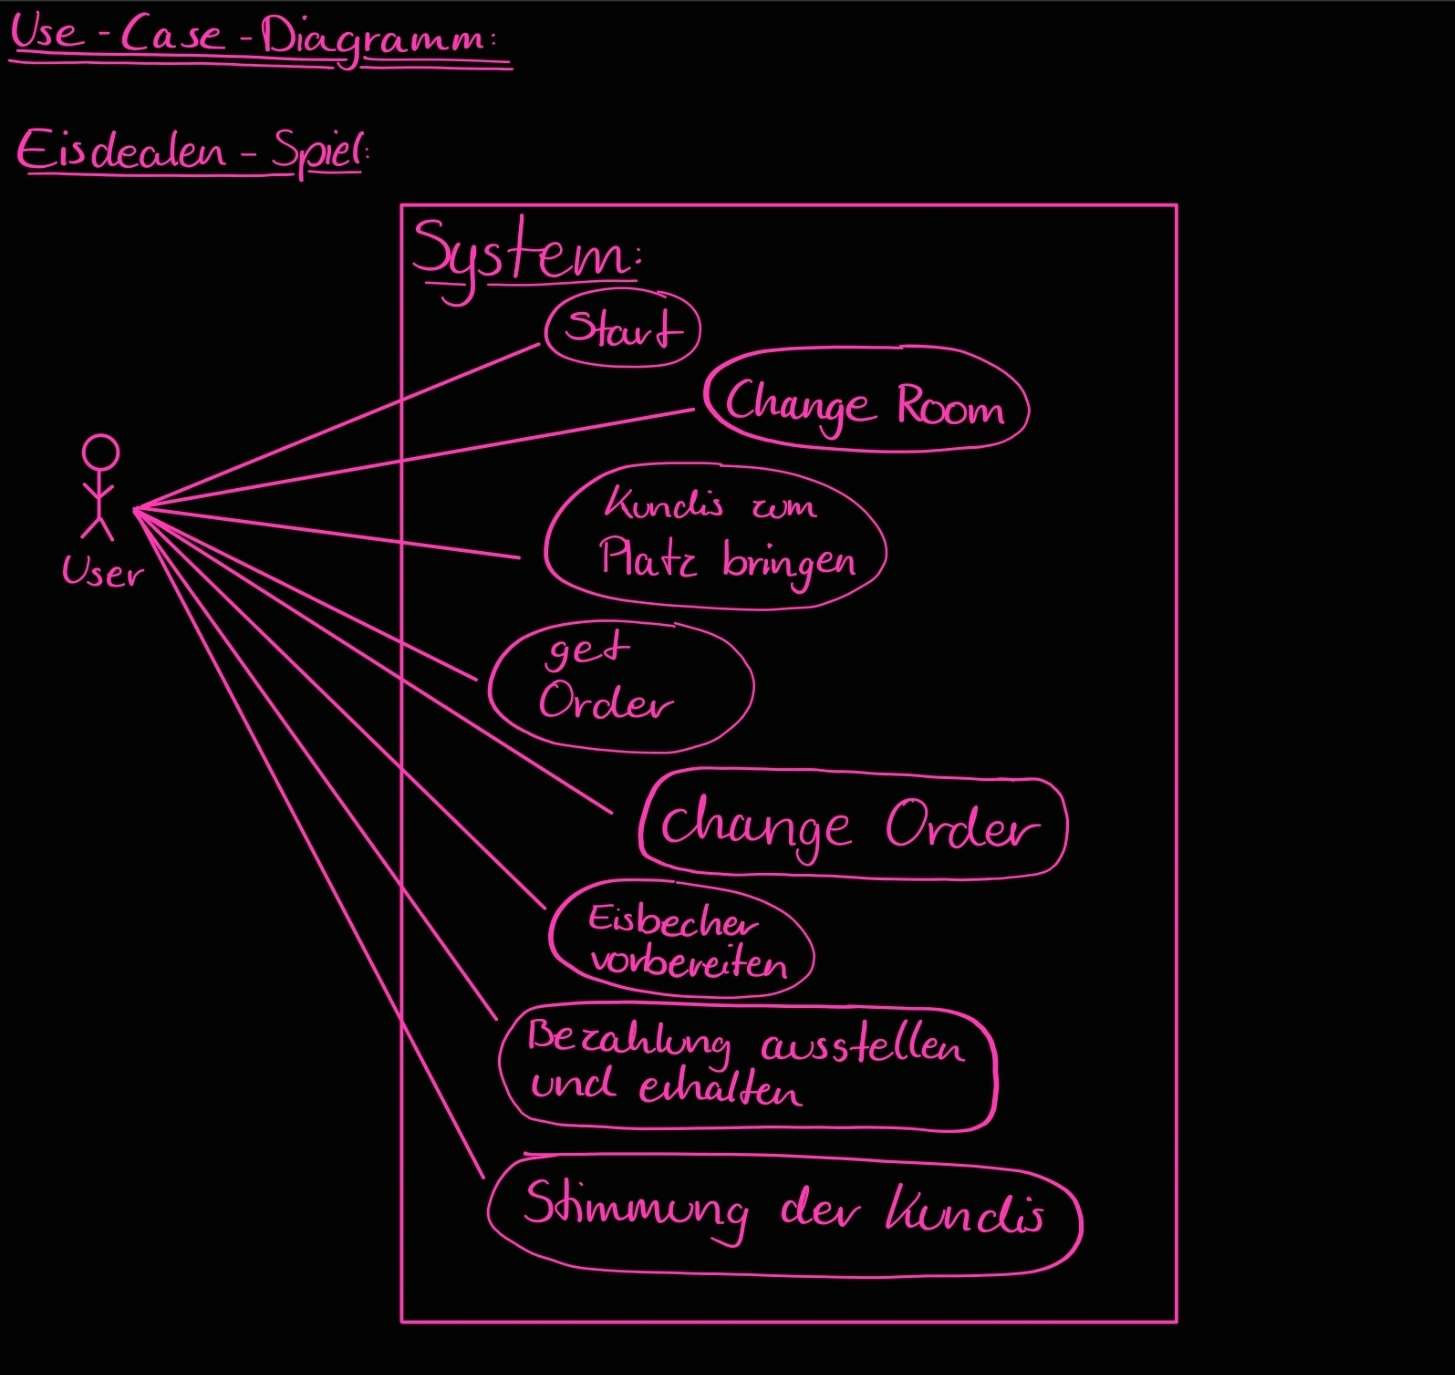 Use-Case-Diagramm:
Eisdealen-Spiel:
System:
Start
Change Room
Kundis zum
Platz bringen
User
get
Order
change Order
Eisbecher
vorbereiten
Bezahlung ausstellen
und erhalten
Stimmung der Kundis